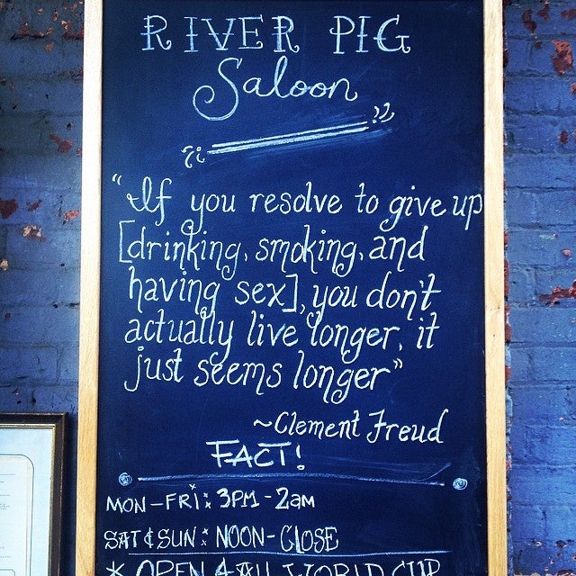 RIVER PIG
Saloon
"If you resolve to give up
[drinking, smoking, and
having sex], you don't
actually live longer, it
just seems longer"
~Clement Freud
FACT!
MON-FRI: 3PM-2AM
SAT & SUN: NOON-CLOSE
* OPEN 4 ALL WORLD CUP